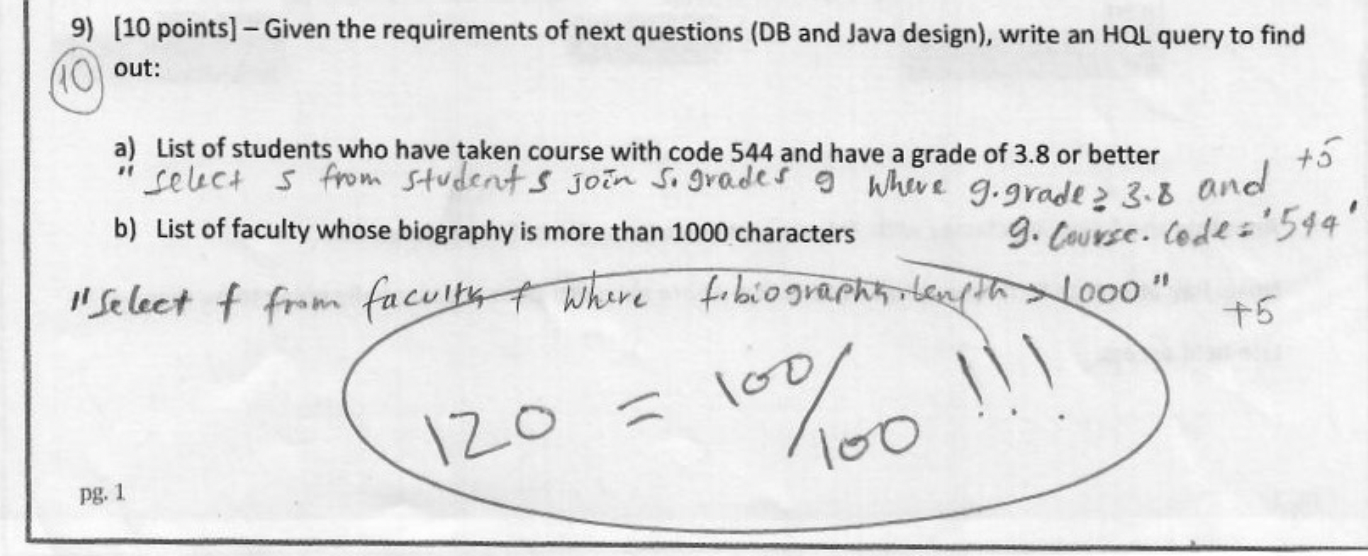 9) [10 points] – Given the requirements of next questions (DB and Java design), write an HQL query to find
10 out:
a) List of students who have taken course with code 544 and have a grade of 3.8 or better
+5
" select s from student s join s.grades g where g.grade ≥ 3.8 and
g.course.code = '544'
b) List of faculty whose biography is more than 1000 characters
"select f from faculty f where f.biography.length > 1000"
+5
120 = 100/100 !!!
pg. 1